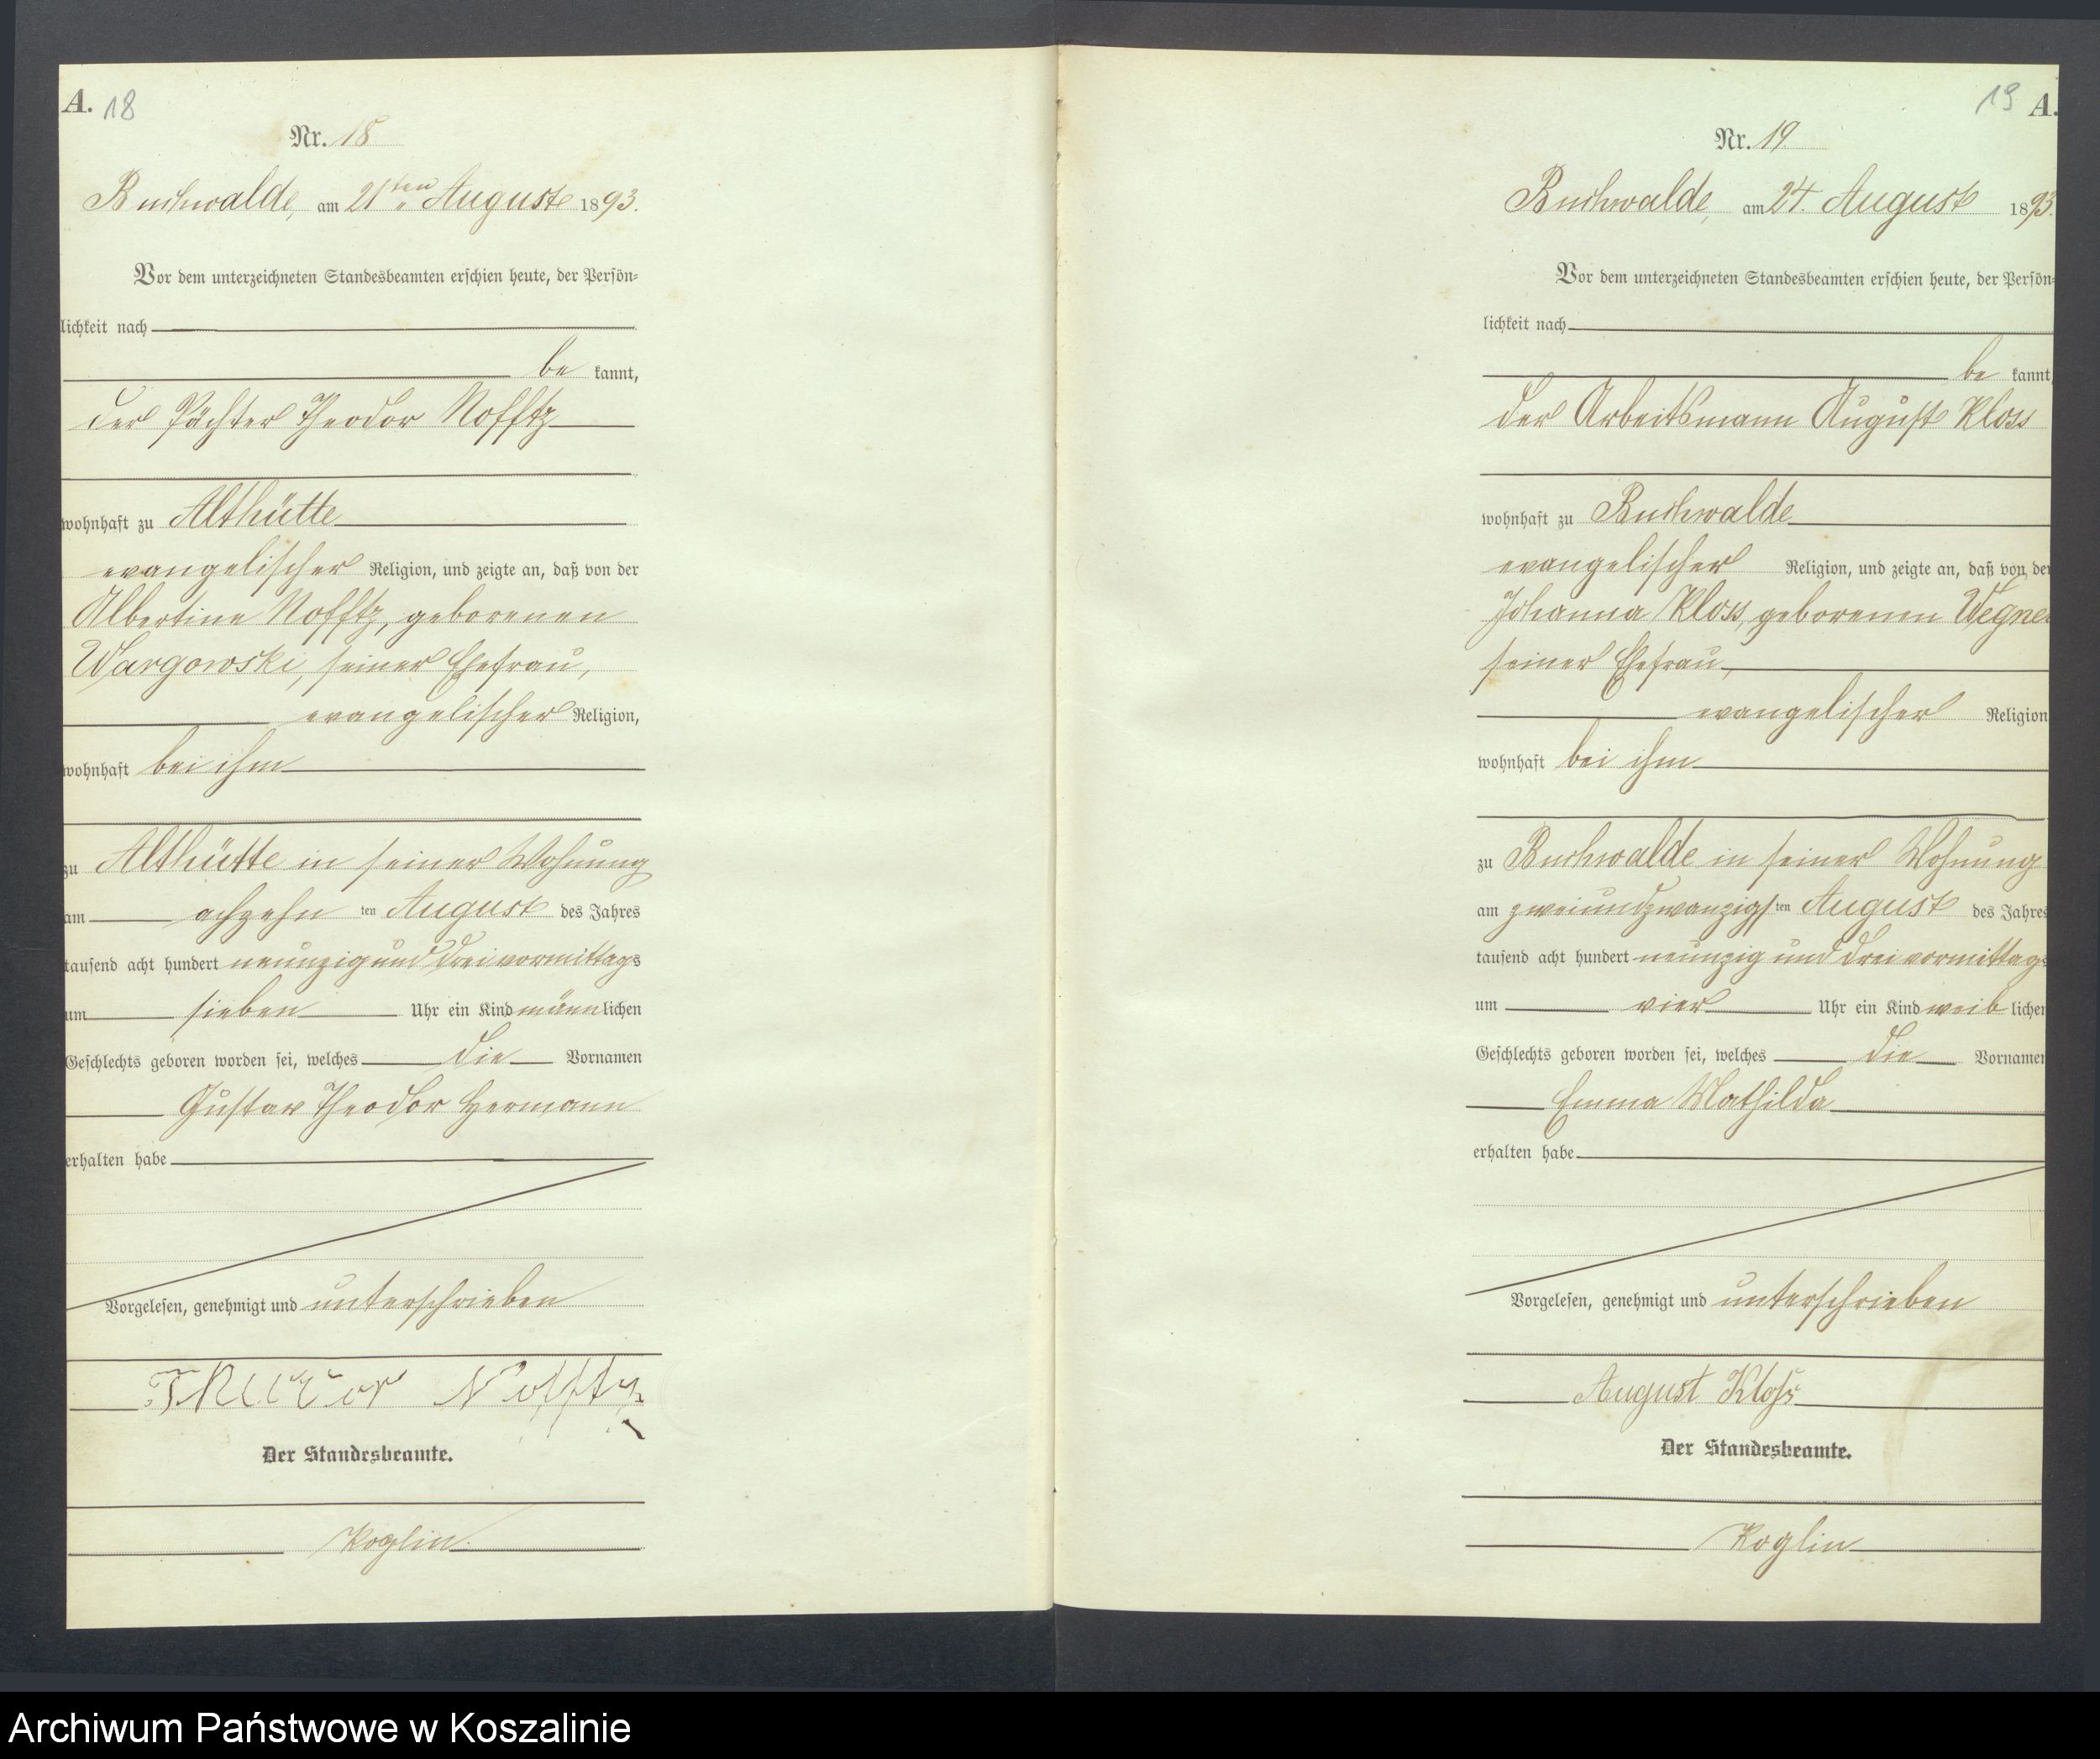 A. 18
Nr. 18
Buchwalde, am 21ten August 1893.
Vor dem unterzeichneten Standesbeamten erschien heute, der Persön-
lichkeit nach
be kannt,
der Pächter Theodor Nofftz
wohnhaft zu Althütte
evangelischer Religion, und zeigte an, daß von der
Albertine Nofftz, geborenen
Wargowski, seiner Ehefrau,
evangelischer Religion,
wohnhaft bei ihm
zu Althütte in seiner Wohnung
am achzehn ten August des Jahres
tausend acht hundert neunzig und drei vormittags
um sieben Uhr ein Kind männlichen
Geschlechts geboren worden sei, welches die Vornamen
Gustav Theodor Hermann
erhalten habe
Vorgelesen, genehmigt und unterschrieben
Nofftz
Der Standesbeamte.
Koglin
19 A.
Nr. 19
Buchwalde, am 24. August 1893.
Vor dem unterzeichneten Standesbeamten erschien heute, der Persön-
lichkeit nach
be kannt
der Arbeitsmann August Kloss
wohnhaft zu Buchwalde
evangelischer Religion, und zeigte an, daß von der
Johanna Kloss, geborenen Wegner
seiner Ehefrau,
evangelischer Religion
wohnhaft bei ihm
zu Buchwalde in seiner Wohnung
am zweiundzwanzigs ten August des Jahres
tausend acht hundert neunzig und drei vormittags
um vier Uhr ein Kind weib lichen
Geschlechts geboren worden sei, welches die Vornamen
Emma Mathilda
erhalten habe
Vorgelesen, genehmigt und unterschrieben
August Kloſs
Der Standesbeamte.
Koglin
Archiwum Państwowe w Koszalinie